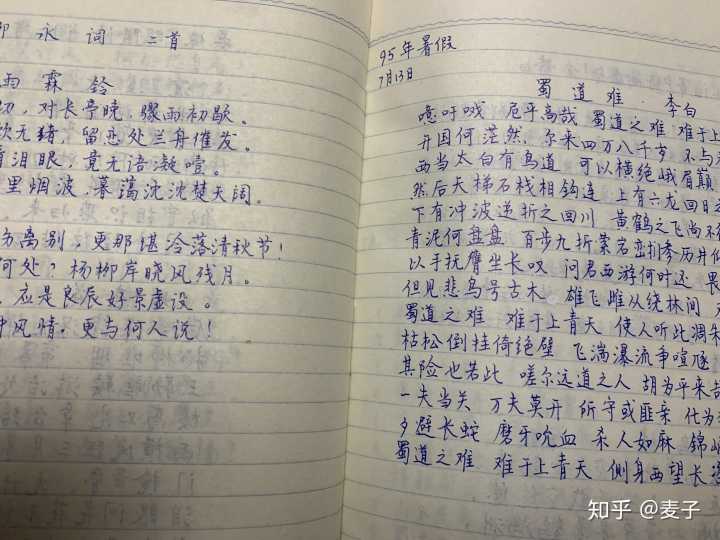 永词 二首
雨霖铃
切，对长亭晚，骤雨初歇。
饮无绪，留恋处兰舟催发。
看泪眼，竟无语凝噎。
里烟波，暮蔼沈沈楚天阔。
伤离别，更那堪冷落清秋节！
何处？杨柳岸晓风残月。
，应是良辰好景虚设。
种风情，更与何人说！
95年暑假
7月13日
蜀道难 . 李白
噫吁哦 危乎高哉 蜀道之难 难于上
开国何茫然，尔来四万八千岁 不与
西当太白有鸟道 可以横绝峨眉巅
然后天梯石栈相钩连 上有六龙回日
下有冲波逆折之回川 黄鹤之飞尚不
青泥何盘盘 百步九折萦岩峦扪参历井
以手抚膺坐长叹 问君西游何时还 畏
但见悲鸟号古木 雄飞雌从绕林间
蜀道之难 难于上青天 使人听此凋朱
枯松倒挂倚绝壁 飞湍瀑流争喧豗
其险也若此 嗟尔远道之人 胡为乎来哉
一夫当关 万夫莫开 所守或匪亲 化为
夕避长蛇 磨牙吮血 杀人如麻 锦
蜀道之难 难于上青天 侧身西望长
知乎 @麦子